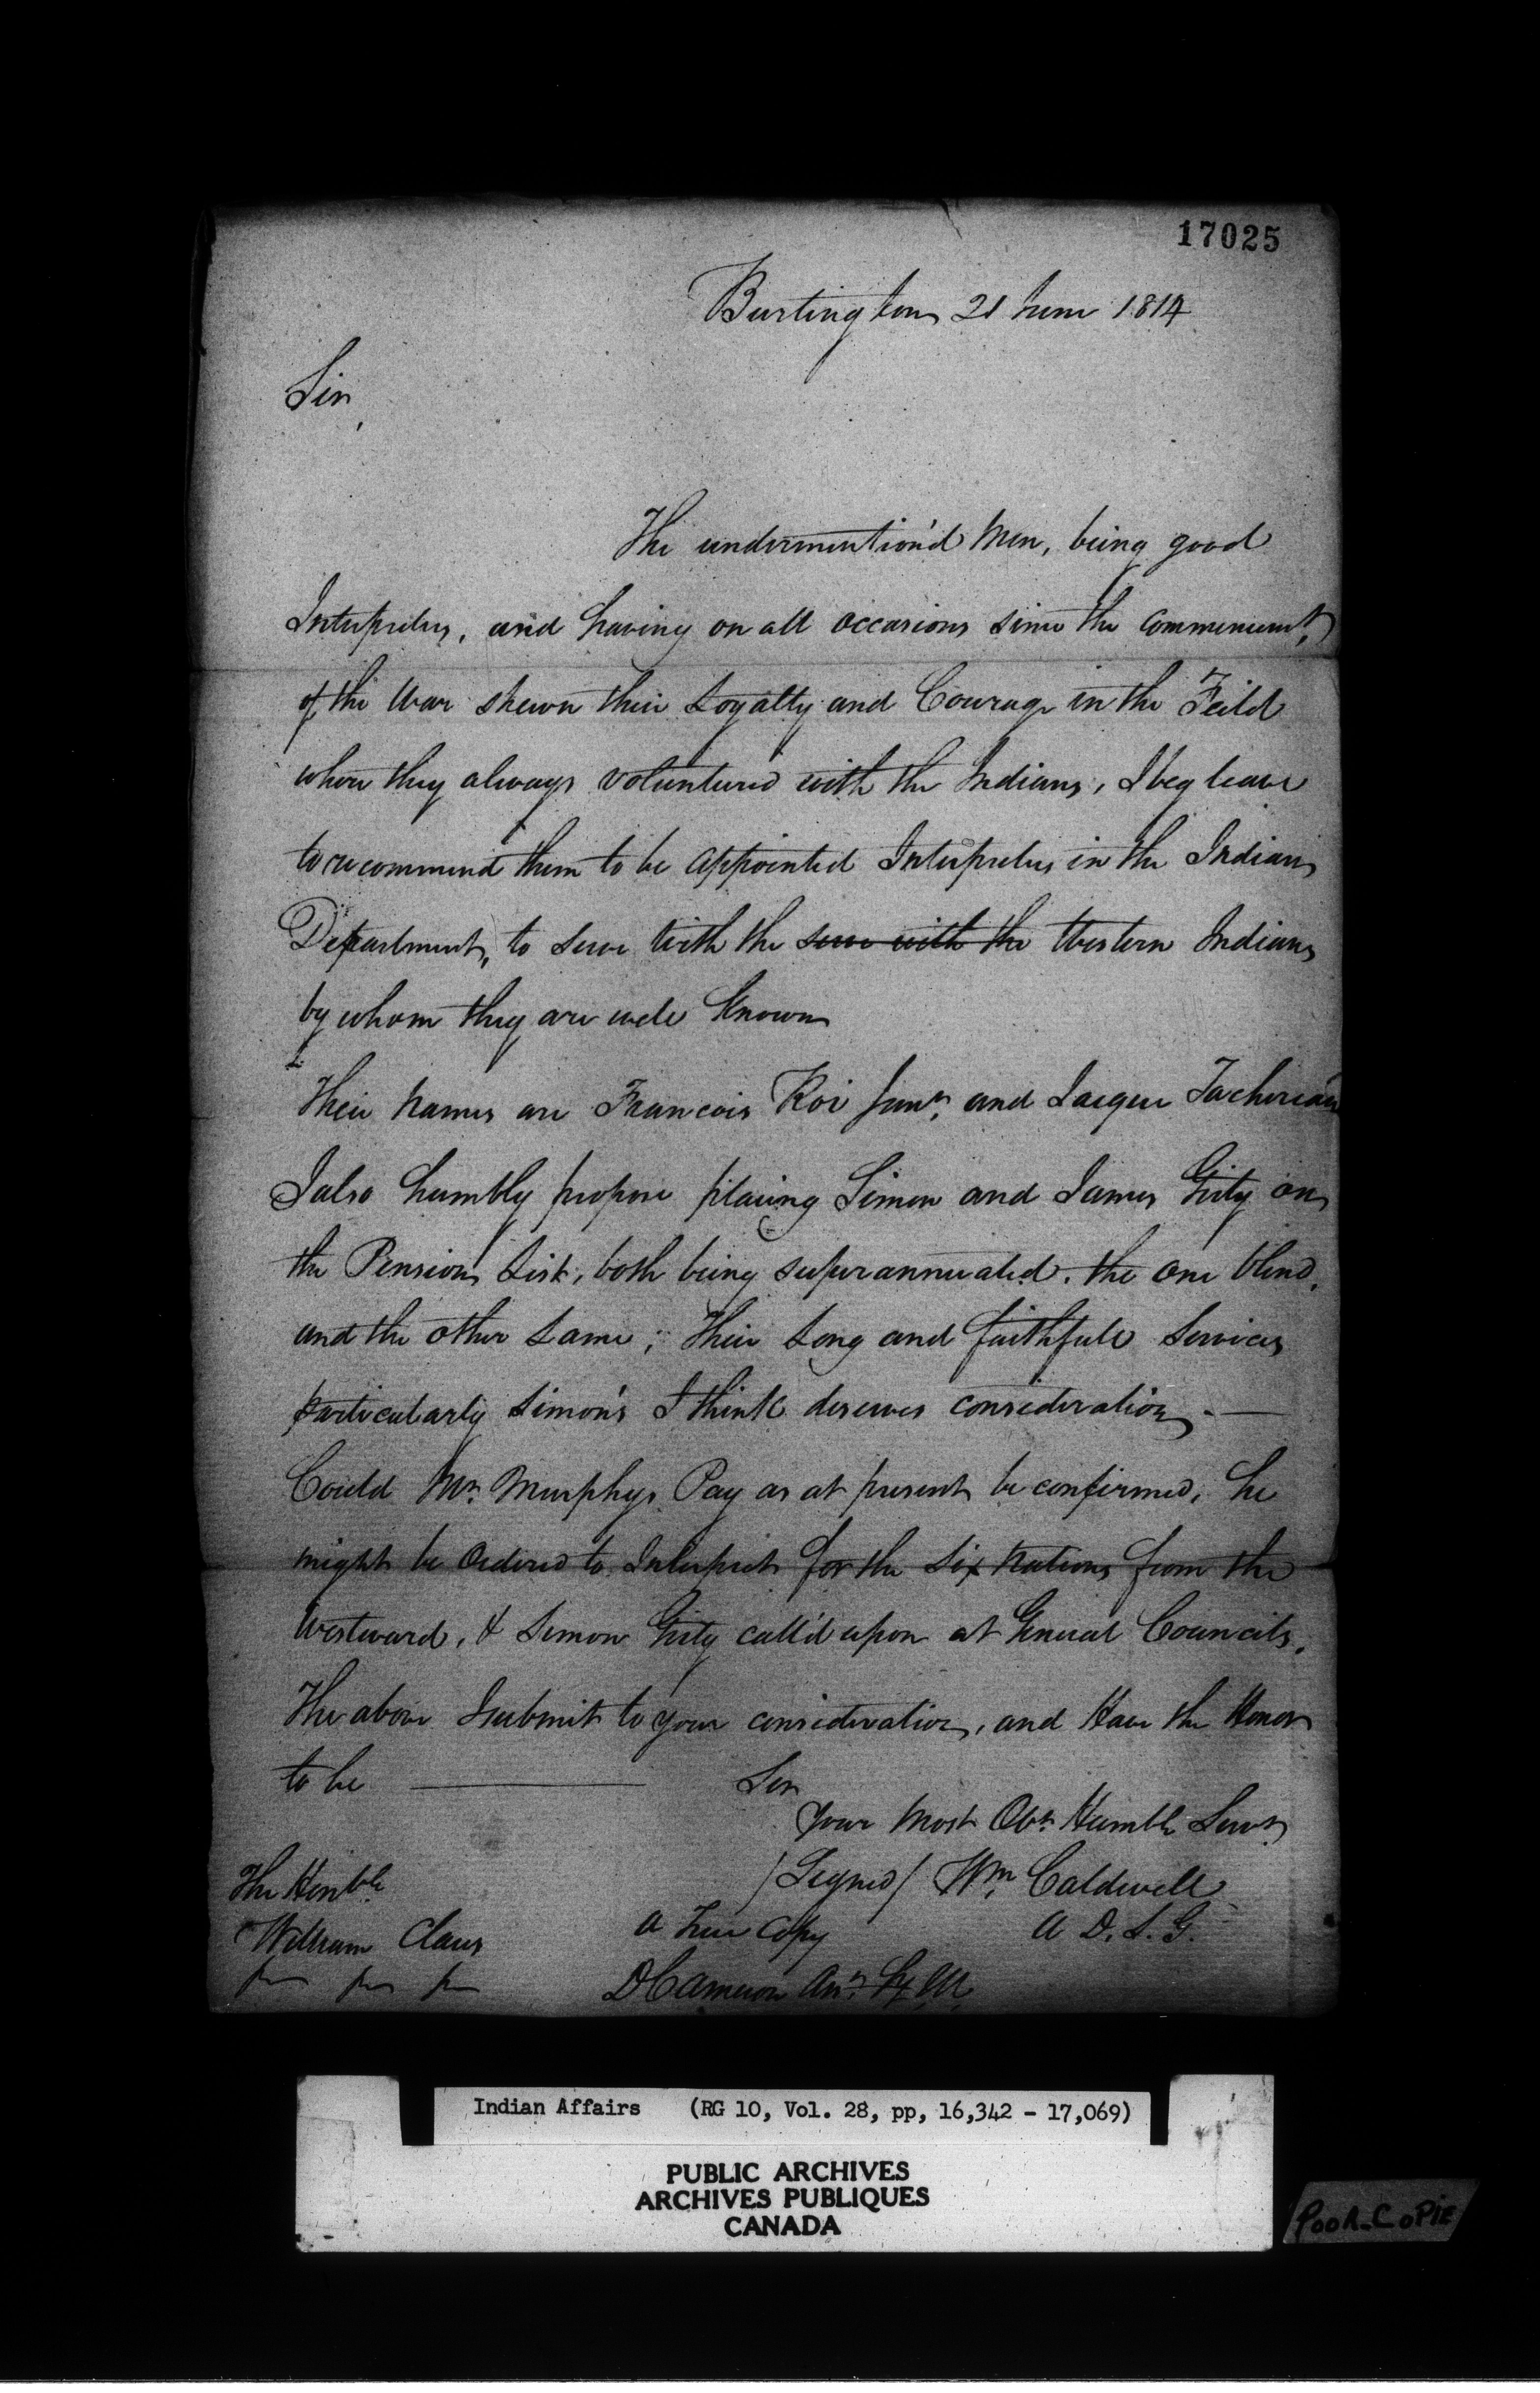 17025
Burlington 21 June 1814
Sir,
The undermention'd Men, being good
Interpreters, and having on all occasions since the commencement,
of the War shewn their Loyalty and Courage in the Feild
where they always voluntured with the Indians, I beg leave
to recommend them to be appointed Interpreters in the Indian
Department, to serve with the serve with the Western Indians
by whom they are well known
Their Names are Francois Roi Junr. and Jaque
I also humbly propose placing Simon and James Girty on
the Pension List, both being superannuated. the one blind,
and the other Lame; Their Long and faithfull Services
particularly Simon's I think deserves consideration. —
Could Mr. Murphys Pay as at present be confirmed, he
might be Ordered to Interpret for the Six Nations from the
Westward, & Simon Girty call'd upon at General Councils.
The above I submit to your consideration, and Have the Honor
to be — Sir
Your Most Obt. Humble Servt
/Signed/ Wm. Caldwell
The Honble
A D. S. G.
a True Copy
William Claus
D Cameron
Indian Affairs (RG 10, Vol. 28, pp, 16,342 - 17,069)
PUBLIC ARCHIVES
ARCHIVES PUBLIQUES
CANADA
POOR COPIE